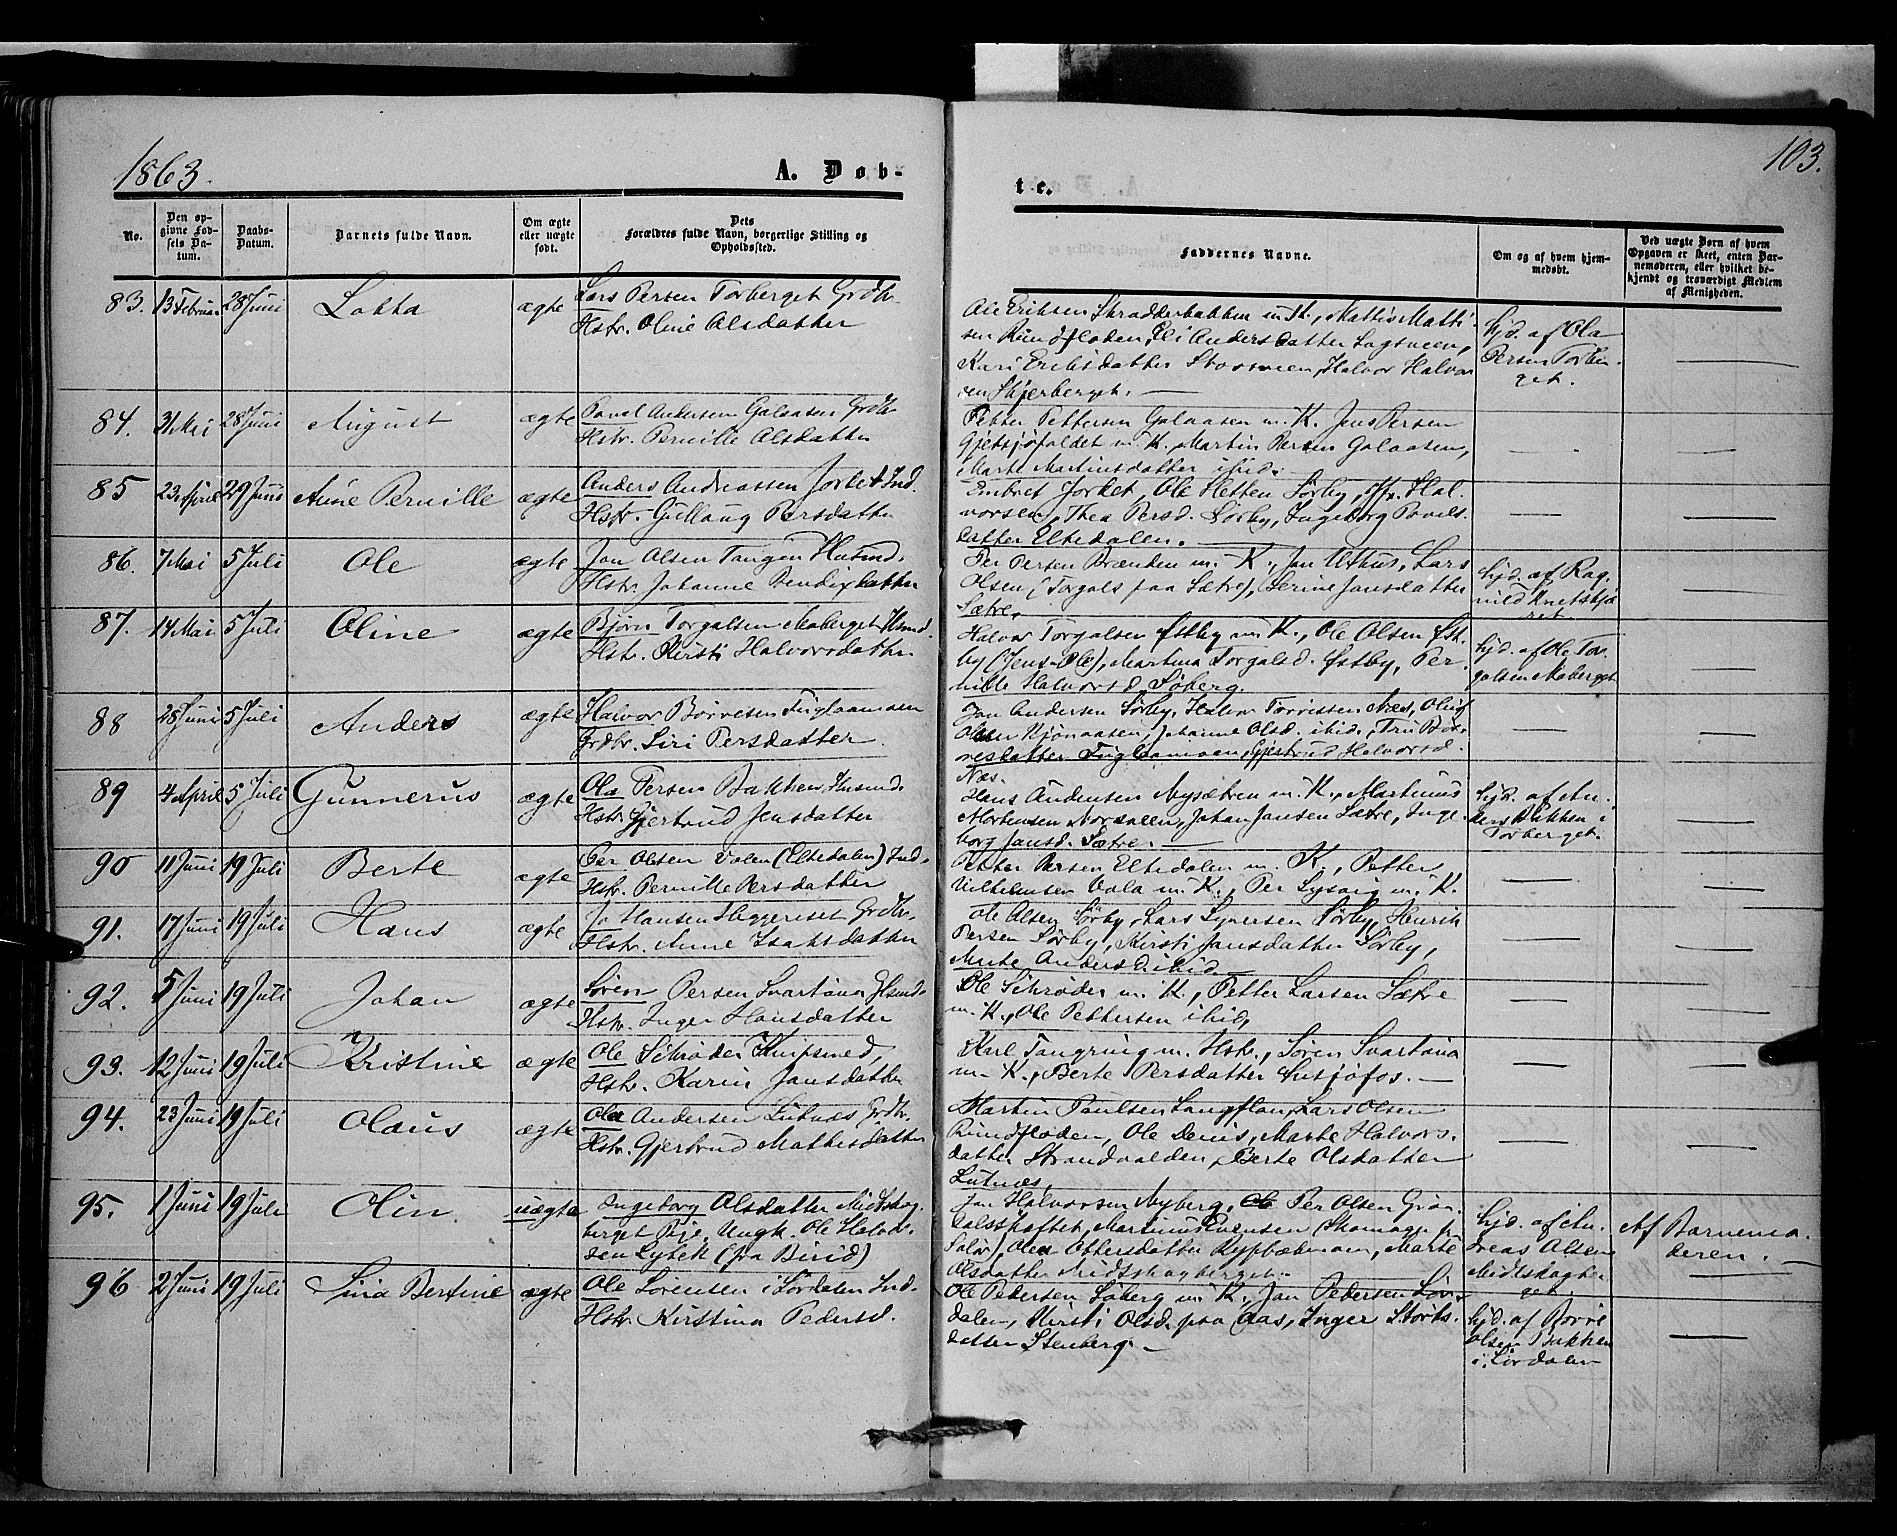 1863.
A. Døb-
te.
103.
No.
Den op-
givne Fød-
sels Da-
tum.
Daabs-
Datum.
Barnets fulde Navn.
Om ægte
eller uægte
født.
Dets
Forældres fulde Navn, borgerlige Stilling og
Opholdssted.
Faddernes Navne.
Om og af hvem hjem-
medøbt.
Ved uægte Børn af hvem
Opgaven er skeet, enten Bar-
nemoderen, eller hvilket be-
kjendt og troværdigt Medlem
af Menigheden.
83. 13 Februar 28 Juni Lotta ægte Lars Persen Torberget Grdbr.
Hstr. Oline Olsdatter
Ole Eriksen Skradderbakken m. K., Mattis Matti-
sen Rundfloden, Eli Andersdatter Lugsveen,
Kari Eriksdatter Storveen, Halvor Halvor
sen Skjerberget.
hjd. af Ola
Persen Torber-
get.
84. 31 Mai 28 Juni August ægte Povel Andersen Galaasen Grdbr.
Hstr. Pernille Olsdatter
Petter Pettersen Galaasen m. K. Jens Persen
Gjetsjøfaldet m. K., Martin Persen Galaasen,
Marte Martinsdatter ibid.
85 23 April 29 Juni Anne Pernille ægte Anders Andreassen Jorket Ind.
Hstr. Gullaug Persdatter
Embret Jorket, Ole Hetten Sørby, Hal-
vorsen, Thea Persd. Sørby, Ingeborg Povels-
datter Eltedalen.
86. 7 Mai 5 Juli Ole ægte Jon Olsen Tangen Husmd.
Hstr. Johanne Bendixdatter
Per Persen Brænden m. K., Jon Uthus, Lars
Olsen, (Torgals paa Sætre), Serine Jansdatter
Sætre.
hjd. af Rag-
nild Knetskjæ
ret.
87. 14 Mai 5 Juli Oline ægte Bjørn Torgalsen Moberget Husmd.
Hstr. Kirsti Halvorsdatter
Halvor Torgalsen Østby m. K., Ole Olsen Øst-
by (Jens-Ole), Martina Torgalsd. Østby, Per-
nille Halvorsd. Søberg.
hjd. af Ole Tor-
galsen Moberget
88 28 Juni 5 Juli Anders ægte Halvor Børresen Fuglaamoen
Grdbr. Siri Persdatter
Jon Andersen Sørby, Halvor Torrissen Næs, Oluf
Olsen Kjønaasen, Johanne Olsd. ibid., Tru Bør-
resdatter Fuglaamoen, Gjertrud Halvorsd.
Næs.
89 4 April 5 Juli Gunnerus ægte Ola Persen Bakken, Husmd.
Hstr. Gjertrud Jensdatter
Hans Andersen Nysætren m. K., Martinus
Mortensen Nordveen, Johan Jansen Sætre, Inge-
borg Jansd. Sætre.
hjd. af An-
ders Bakken i
Torberget.
90 11 Juni 19 Juli Berte ægte Per Olsen Volen (Eltedalen) Ind.
Hstr. Pernille Persdatter
Petter Persen Eltedalen m. K., Petter
Vilhelmsen Vola m. K., Per Lysvig m. K.
91. 17 Juni 19 Juli Hans ægte Jo Hansen Heggeriset Grdbr.
Hstr. Anne Isaksdatter
Ole Olsen Sørby, Lars Syversen Sørby, Henrik
Persen Sørby, Kirsti Jansdatter Sørby,
Marte Andersd. ibid
92. 5 Juni 19 Juli Johan ægte Søren Persen Svartaaen Husmd.
Hstr. Inger Hansdatter
Ole Schrøder m. K., Petter Larsen Sætre
m. K., Ole Pettersen ibid,
93. 12 Juni 19 Juli Kristine ægte Ole Schrøder Knipsmed,
Hstr. Karin Jansdatter
Karl Tangring m. Hstr., Søren Svartaaen
m. K., Berte Persdatter Lutsjøfos.
94. 23 Juni 19 Juli Olaus ægte Ola Andersen Lutnes Grdbr.
Hstr. Gjertrud Mattisdatter
Martin Paulsen Langflon, Lars Olsen
Rundfloden, Ole Denis, Marte Halvors-
datter Strandvolden, Berte Olsdatter
Lutnes.
95. 1 Juni 19 Juli Olin uægte Ingeborg Olsdatter Midtskog-
berget Pige, Ungk. Ole Halvor-
sen Lybek (fra Birid)
Jon Halvorsen Nyberg, Per Olsen Grøn-
dalsskaftet, Martinus Evensen Skomager fr
Solør, Olea Ottersdatter Rypbækmoen, Marte
Olsdatter Midtskogberget.
hjd. af An-
dreas Olsen
Midtskogber
get.
Af Barnemo-
deren.
96 2 Juni 19 Juli Sina Bertine ægte Ole Sørensen i Lørdalen Ind.
Hstr. Kirstina Pedersd.
Ole Pedersen Søberg m. K., Jon Pedersen Lør-
dalen, Kirsti Olsd. paa Aas, Inger Størks-
datter Stenberg.
hjd. af Børre
Olsen Bakken
i Lørdalen